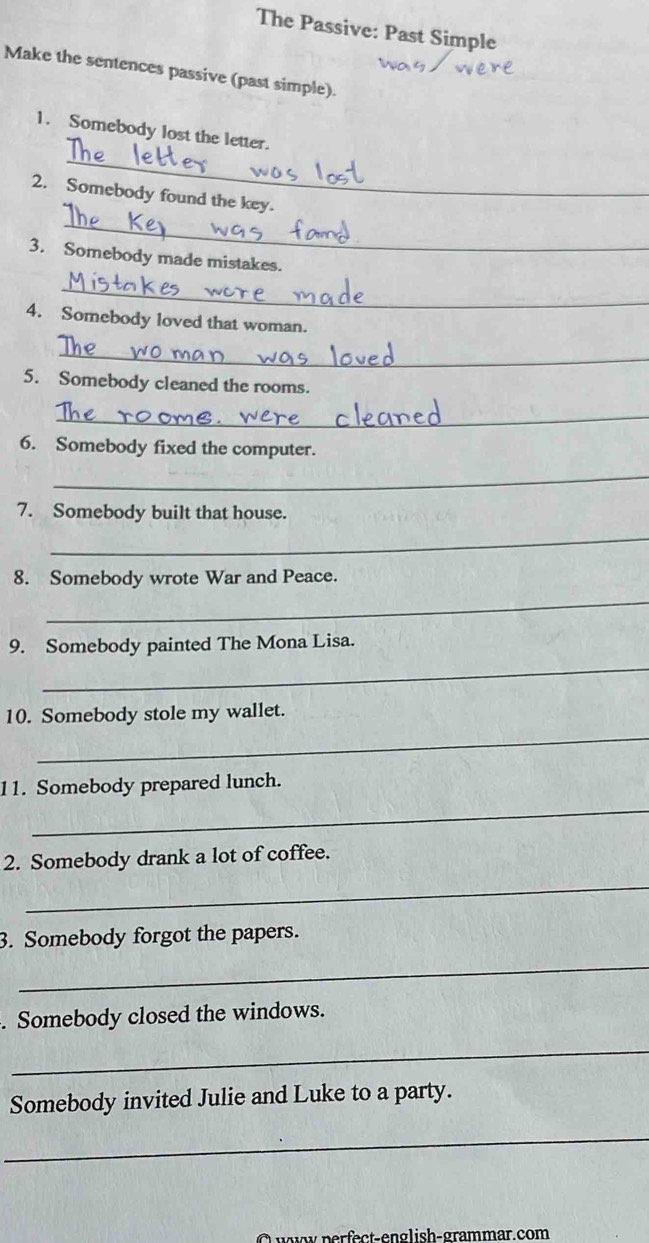 The Passive: Past Simple
was/were
Make the sentences passive (past simple).
1. Somebody lost the letter.
The letter was lost
2. Somebody found the key.
The Key was fand
3. Somebody made mistakes.
Mistakes were made
4. Somebody loved that woman.
The woman was loved
5. Somebody cleaned the rooms.
The rooms. were cleaned
6. Somebody fixed the computer.
7. Somebody built that house.
8. Somebody wrote War and Peace.
9. Somebody painted The Mona Lisa.
10. Somebody stole my wallet.
11. Somebody prepared lunch.
2. Somebody drank a lot of coffee.
3. Somebody forgot the papers.
. Somebody closed the windows.
Somebody invited Julie and Luke to a party.
© www.perfect-english-grammar.com